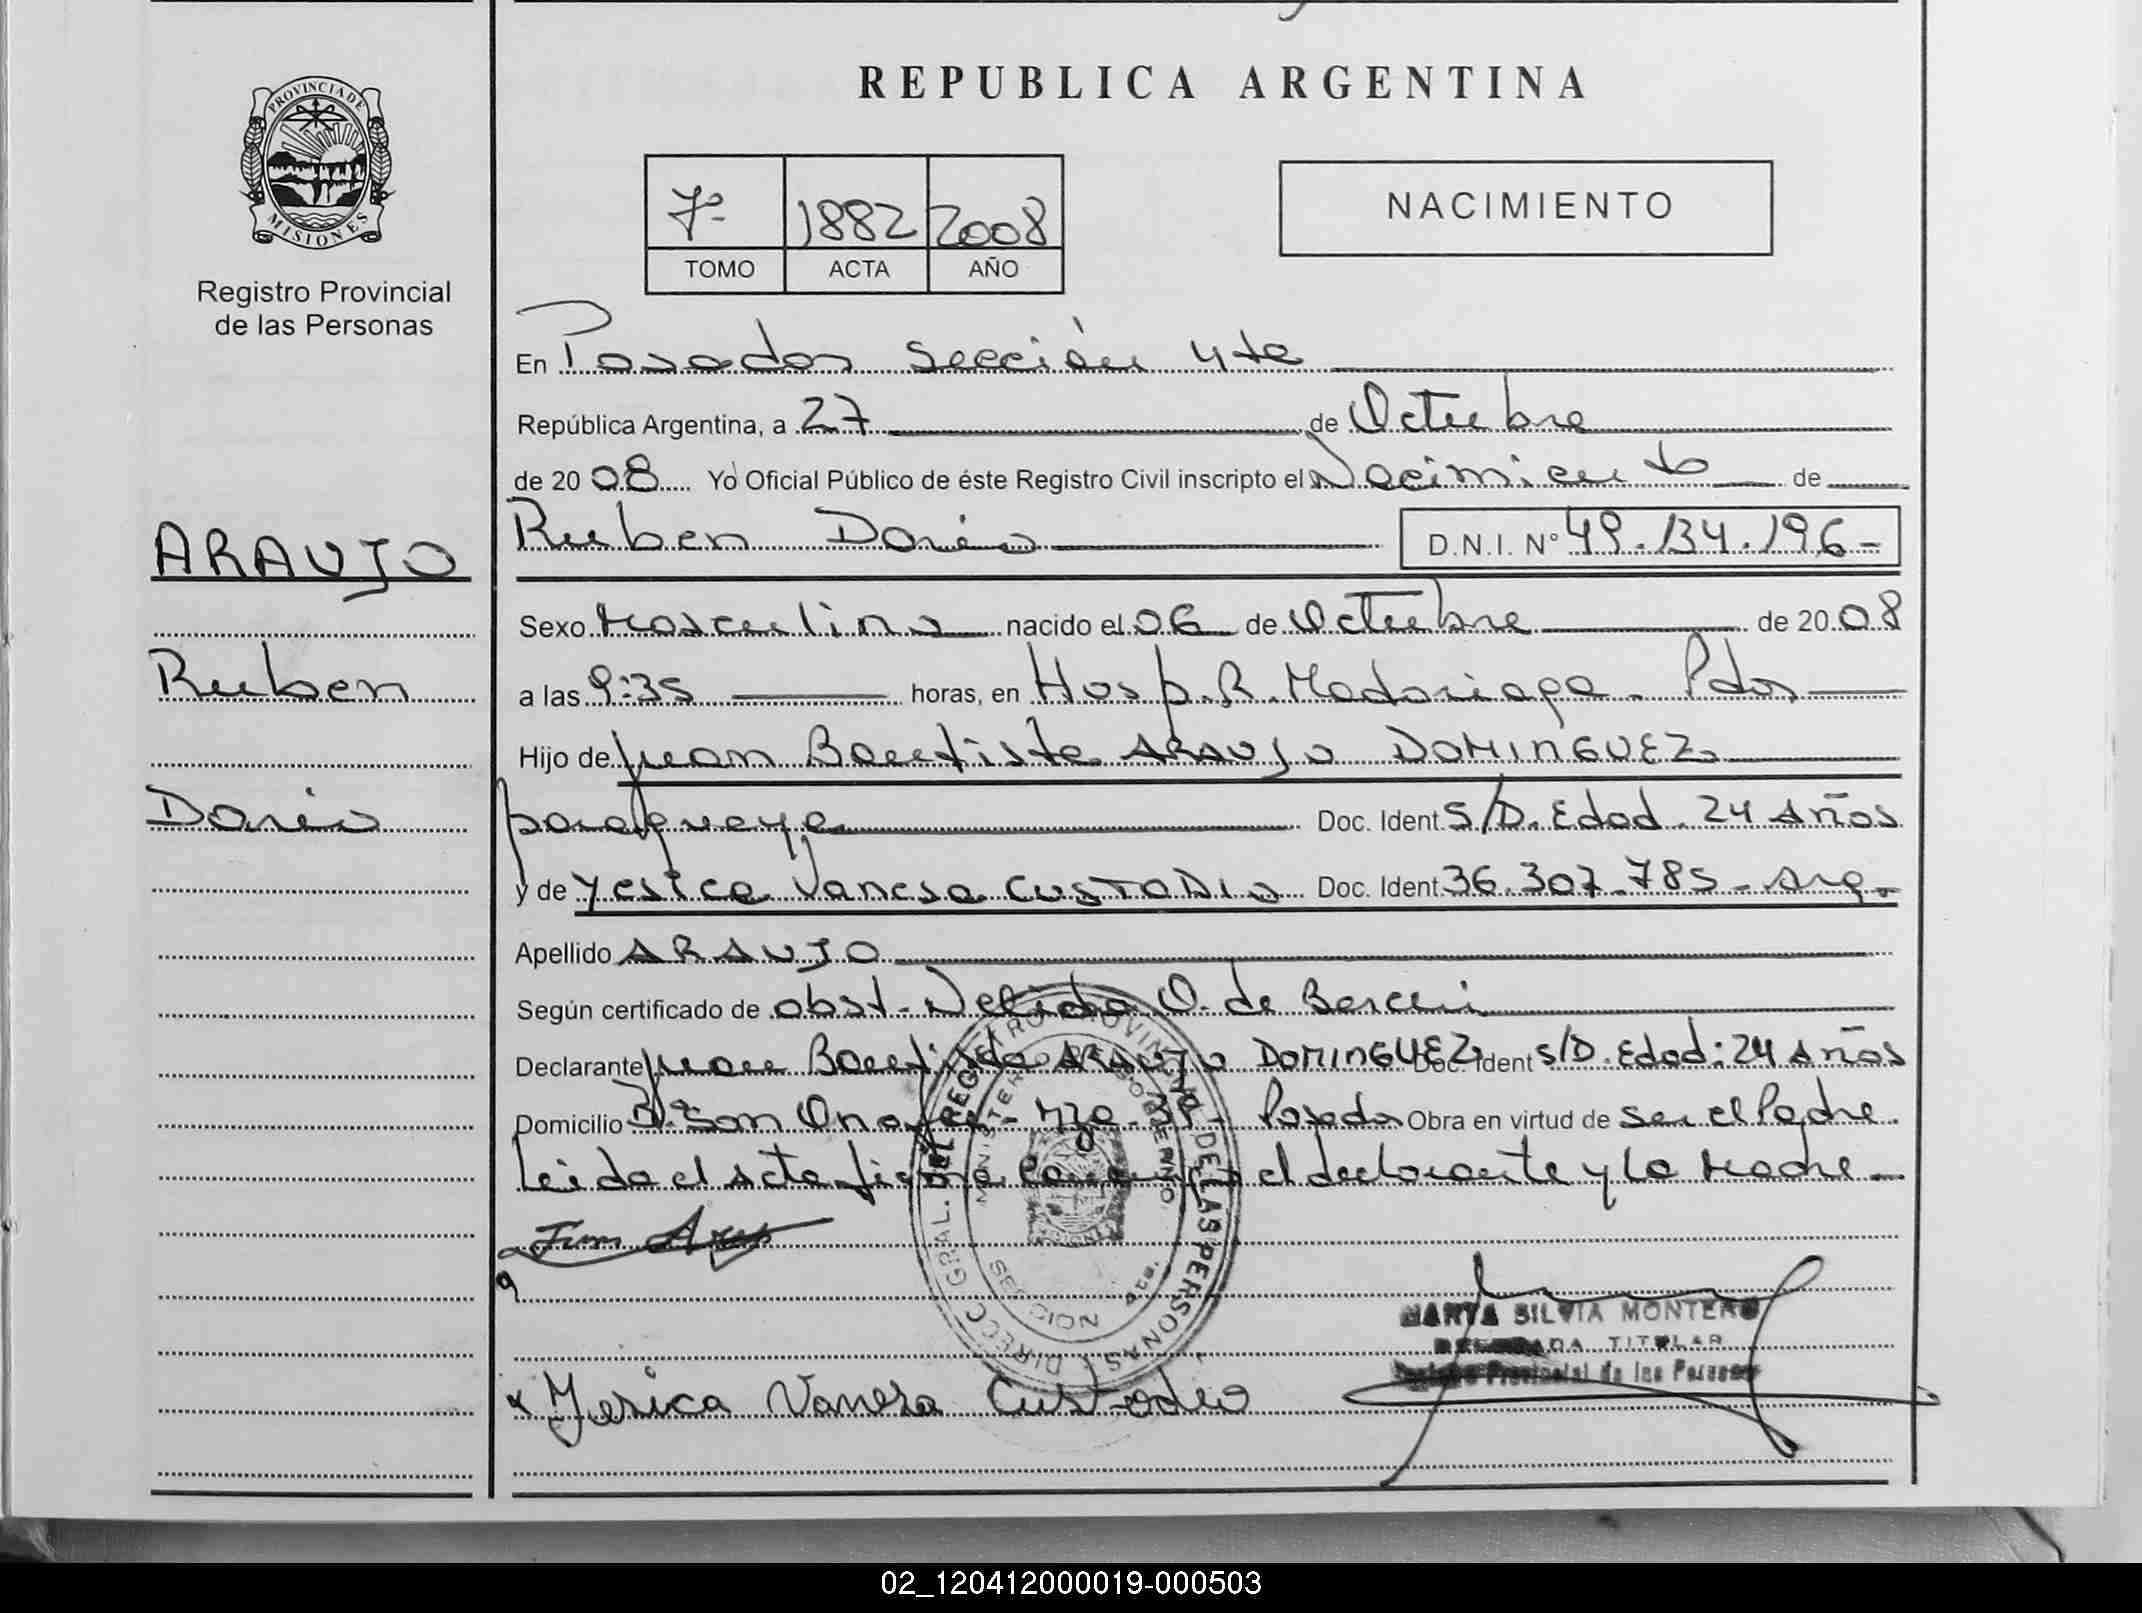 PROVINCIA DE
MISIONES
Registro Provincial
de las Personas
ARAUJO
Ruben
Dario
REPUBLICA ARGENTINA
7º 1882 2008
TOMO ACTA AÑO
NACIMIENTO
En Posadas Sección 4ta
República Argentina, a 27 de Octubre
de 20 08 Yo Oficial Público de éste Registro Civil inscripto el Nacimiento de
Ruben Dario D.N.I. Nº 49.134.196-
Sexo Masculino nacido el 06 de Octubre de 20 08
a las 9:35 horas, en Hosp. R. Madariaga - Pdas
Hijo de Juan Bautista ARAUJO DOMINGUEZ
paraguaya Doc. Ident. S/D. Edad. 24 Años
y de Yesica Vanesa CUSTODIO Doc. Ident. 36.307.785 - Arg.
Apellido ARAUJO
Según certificado de obst. Nelida O. de
Declarante Juan Bautista ARAUJO DOMINGUEZ Doc. Ident S/D. Edad: 24 Años
Domicilio Bº San Onofre - Mza. - Posadas Obra en virtud de ser el Padre.
Leida el acta firma el declarante y la Madre -
DIRECC. GRAL. DEL REGISTRO PROVINCIAL DE LAS PERSONAS
MINISTERIO DE GOBIERNO
Yesica Vanesa Custodio
MARTA SILVIA MONTERO
DELEGADA TITULAR
Registro Provincial de las Personas
02_120412000019-000503